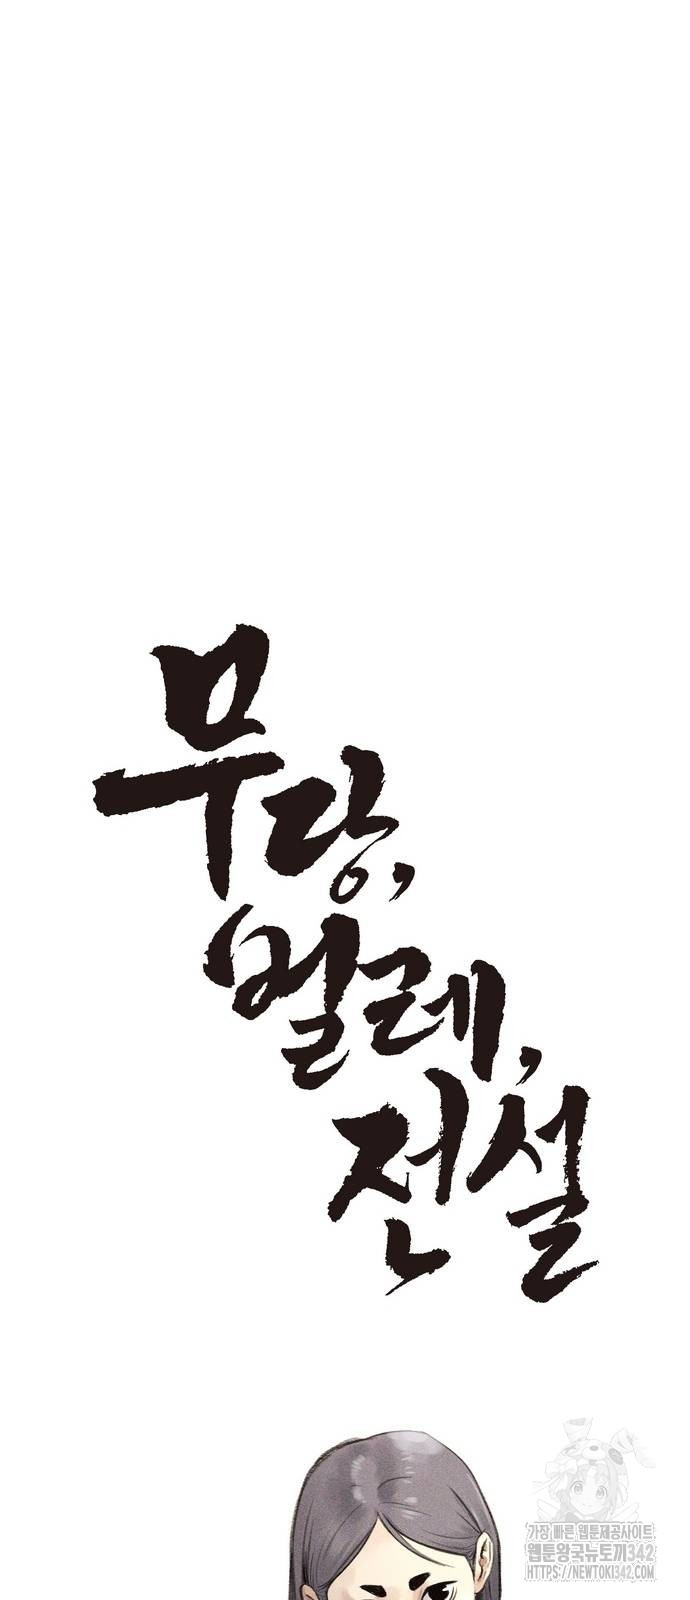 무당,
벌레,
전설
가장 빠른 웹툰제공사이트
웹툰왕국뉴토끼342
HTTPS://NEWTOKI342.COM